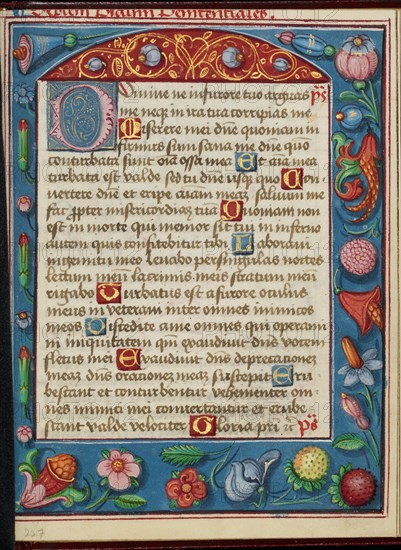 Septem Psalmi Penitentiales.
Domine ne in furore tuo arguas ps
me neq3 in ira tua corripias me
Miserere mei dne quoniam in
firmus sum sana me dne quo
conturbata sunt oia ossa mea Et aia mea
turbata est valde sed tu dne usq3 quo Con
vertere dne et eripe aiam mea3 salvum me
fac propter misericordia3 tua Quoniam non
est in morte qui memor sit tui in inferno
autem quis confitebitur tibi Laboravi
in gemitu meo lavabo per singulas noctes
lectum meu lacrimis meis stratum meu
rigabo Turbatus est a furore oculus
meus inveteravi inter omnes inimicos
meos Discedite a me omnes qui operami
ni iniquitatem qm exaudivit dns vocem
fletus mei Exaudivit dns deprecatione3
mea3 dns oratione3 mea3 suscepit Eru
bescant et conturbentur vehementer om
nes inimici mei convertantur et erube
scant valde velociter Gloria pri ps
227